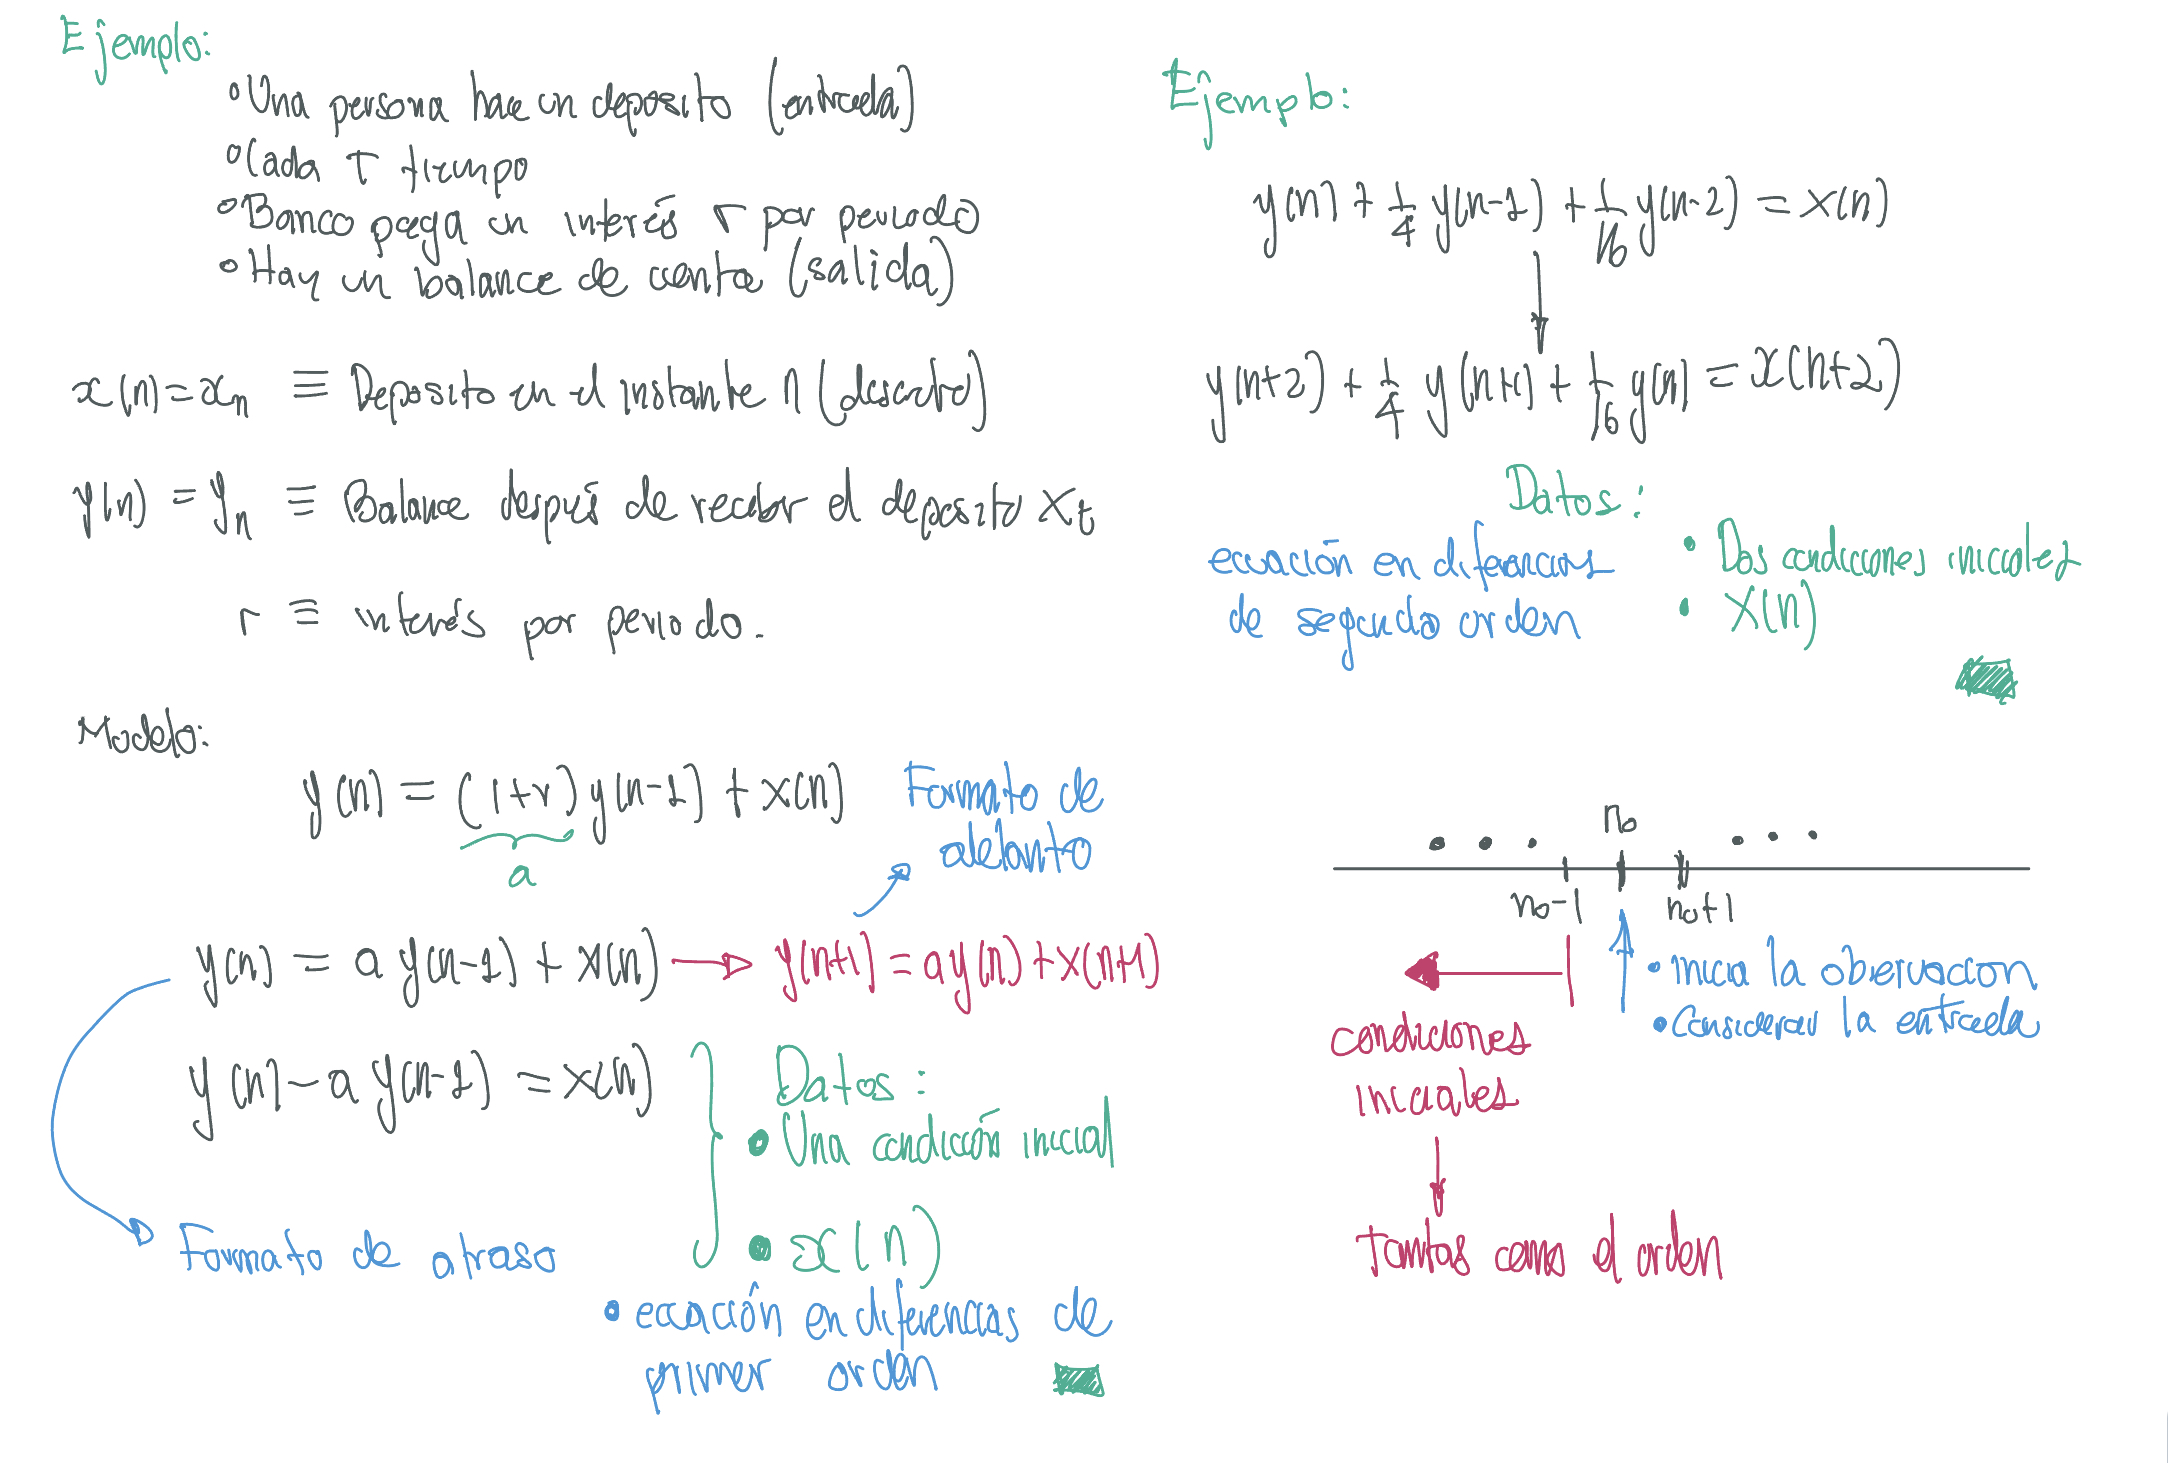 Ejemplo:
• Una persona hace un deposito (entrada)
• Cada T tiempo
• Banco paga un interés r por periodo
• Hay un balance de cuenta (salida)
x(n) = x_n ≡ Deposito en el instante n (discreto)
y(n) = y_n ≡ Balance después de recibir el deposito x_t
r ≡ interés por periodo.
Modelo:
y(n) = (1+r) y(n-1) + x(n)
a
Formato de
adelanto
y(n) = a y(n-1) + x(n) → y(n+1) = a y(n) + x(n+1)
y(n) - a y(n-1) = x(n)
Datos:
• Una condición inicial
• x(n)
Formato de atraso
• ecuación en diferencias de
primer orden
Ejemplo:
y(n) + 1/4 y(n-1) + 1/16 y(n-2) = x(n)
y(n+2) + 1/4 y(n+1) + 1/16 y(n) = x(n+2)
Datos:
• Dos condiciones iniciales
• x(n)
ecuación en diferencias
de segundo orden
n₀
• • • • • •
n₀-1 n₀+1
• inicia la observacion
• Considerar la entrada
condiciones
iniciales
tantas como el orden